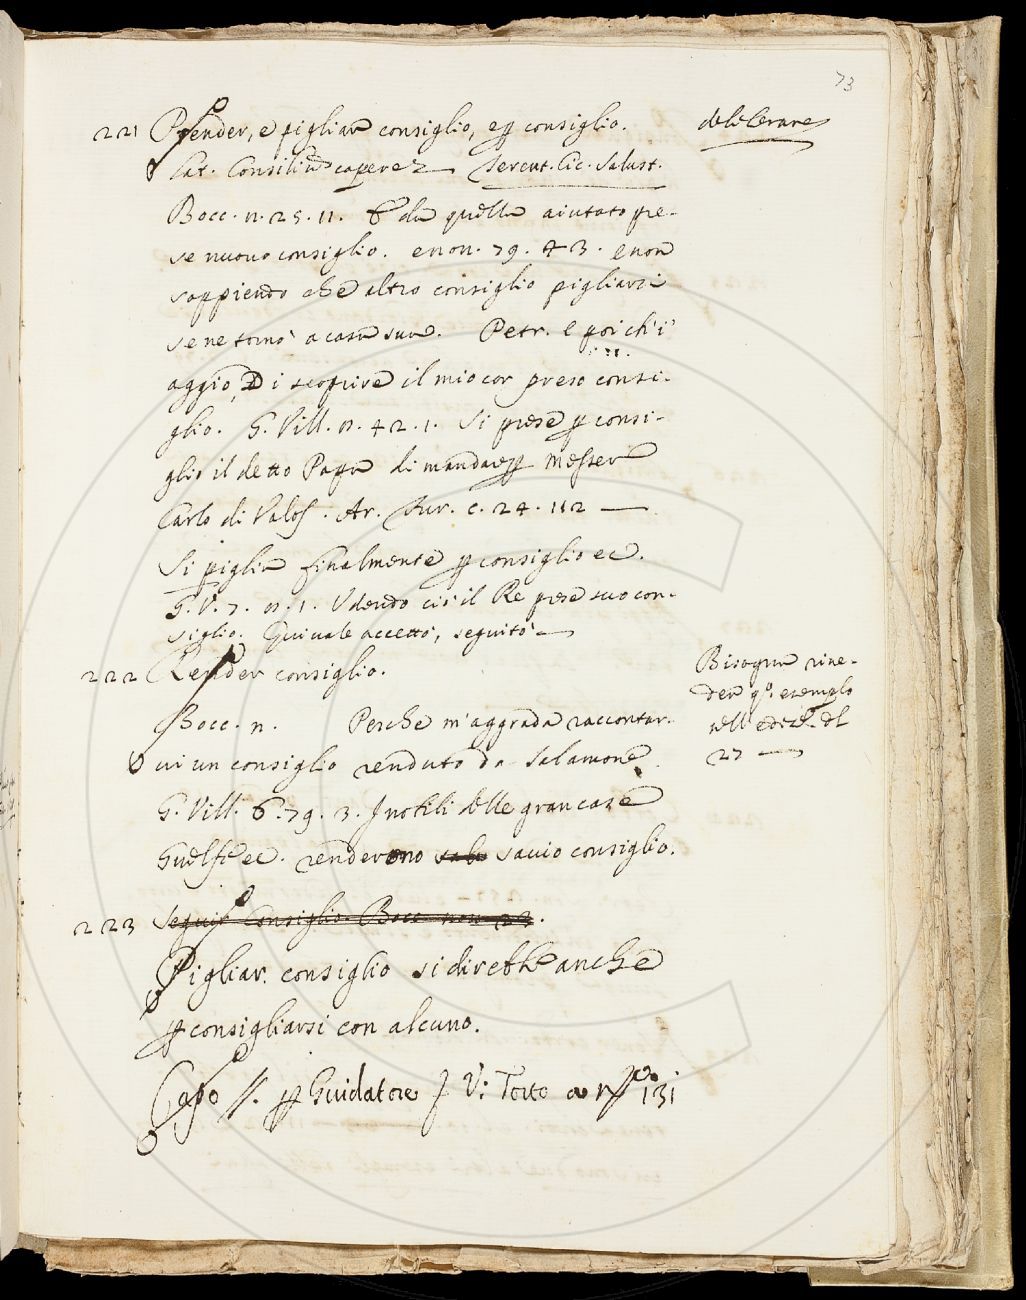 73
221 Prender, e pigliar consiglio, e ꝑ consiglio. deliberare
Lat. Consiliū capere Sercut. Cic. Salust.
Bocc. n. 25. 11. E da quella aiutato pre-
se nuouo consiglio. e non. 79. 43. e non
sappiendo che altro consiglio pigliarsi
se ne tornò a casa sua. Petr. e poi ch'i'
aggio Di scoprire il mio cor preso consi-
glio. G. Vill. 42. 1. Si prese ꝑ consi-
glio il detto Papa di mandare ꝑ Messer
Carlo di Valos. Ar. Fur. c. 24. 112
Si piglia finalmente ꝑ consiglio ec.
G. V. 7. 1. Vdendo ciò il Re prese suo con-
siglio. Qui uale accettò, seguitò
222 Render consiglio. Bisogna riue-
der q.o esempio
nell' ediz. dl
27
Bocc. n. Perche m'aggrada raccontar-
ui un consiglio renduto da Salamone.
G. Vill. 6. 79. 3. I nobili delle gran case
Guelfe ec. renderono sauio consiglio.
223 Seguir Consiglio. Bocc. nou. 23.
Pigliar. consiglio si direbbe anche
ꝑ consigliarsi con alcuno.
Capo ꝑ Guidatore V: Testo 131